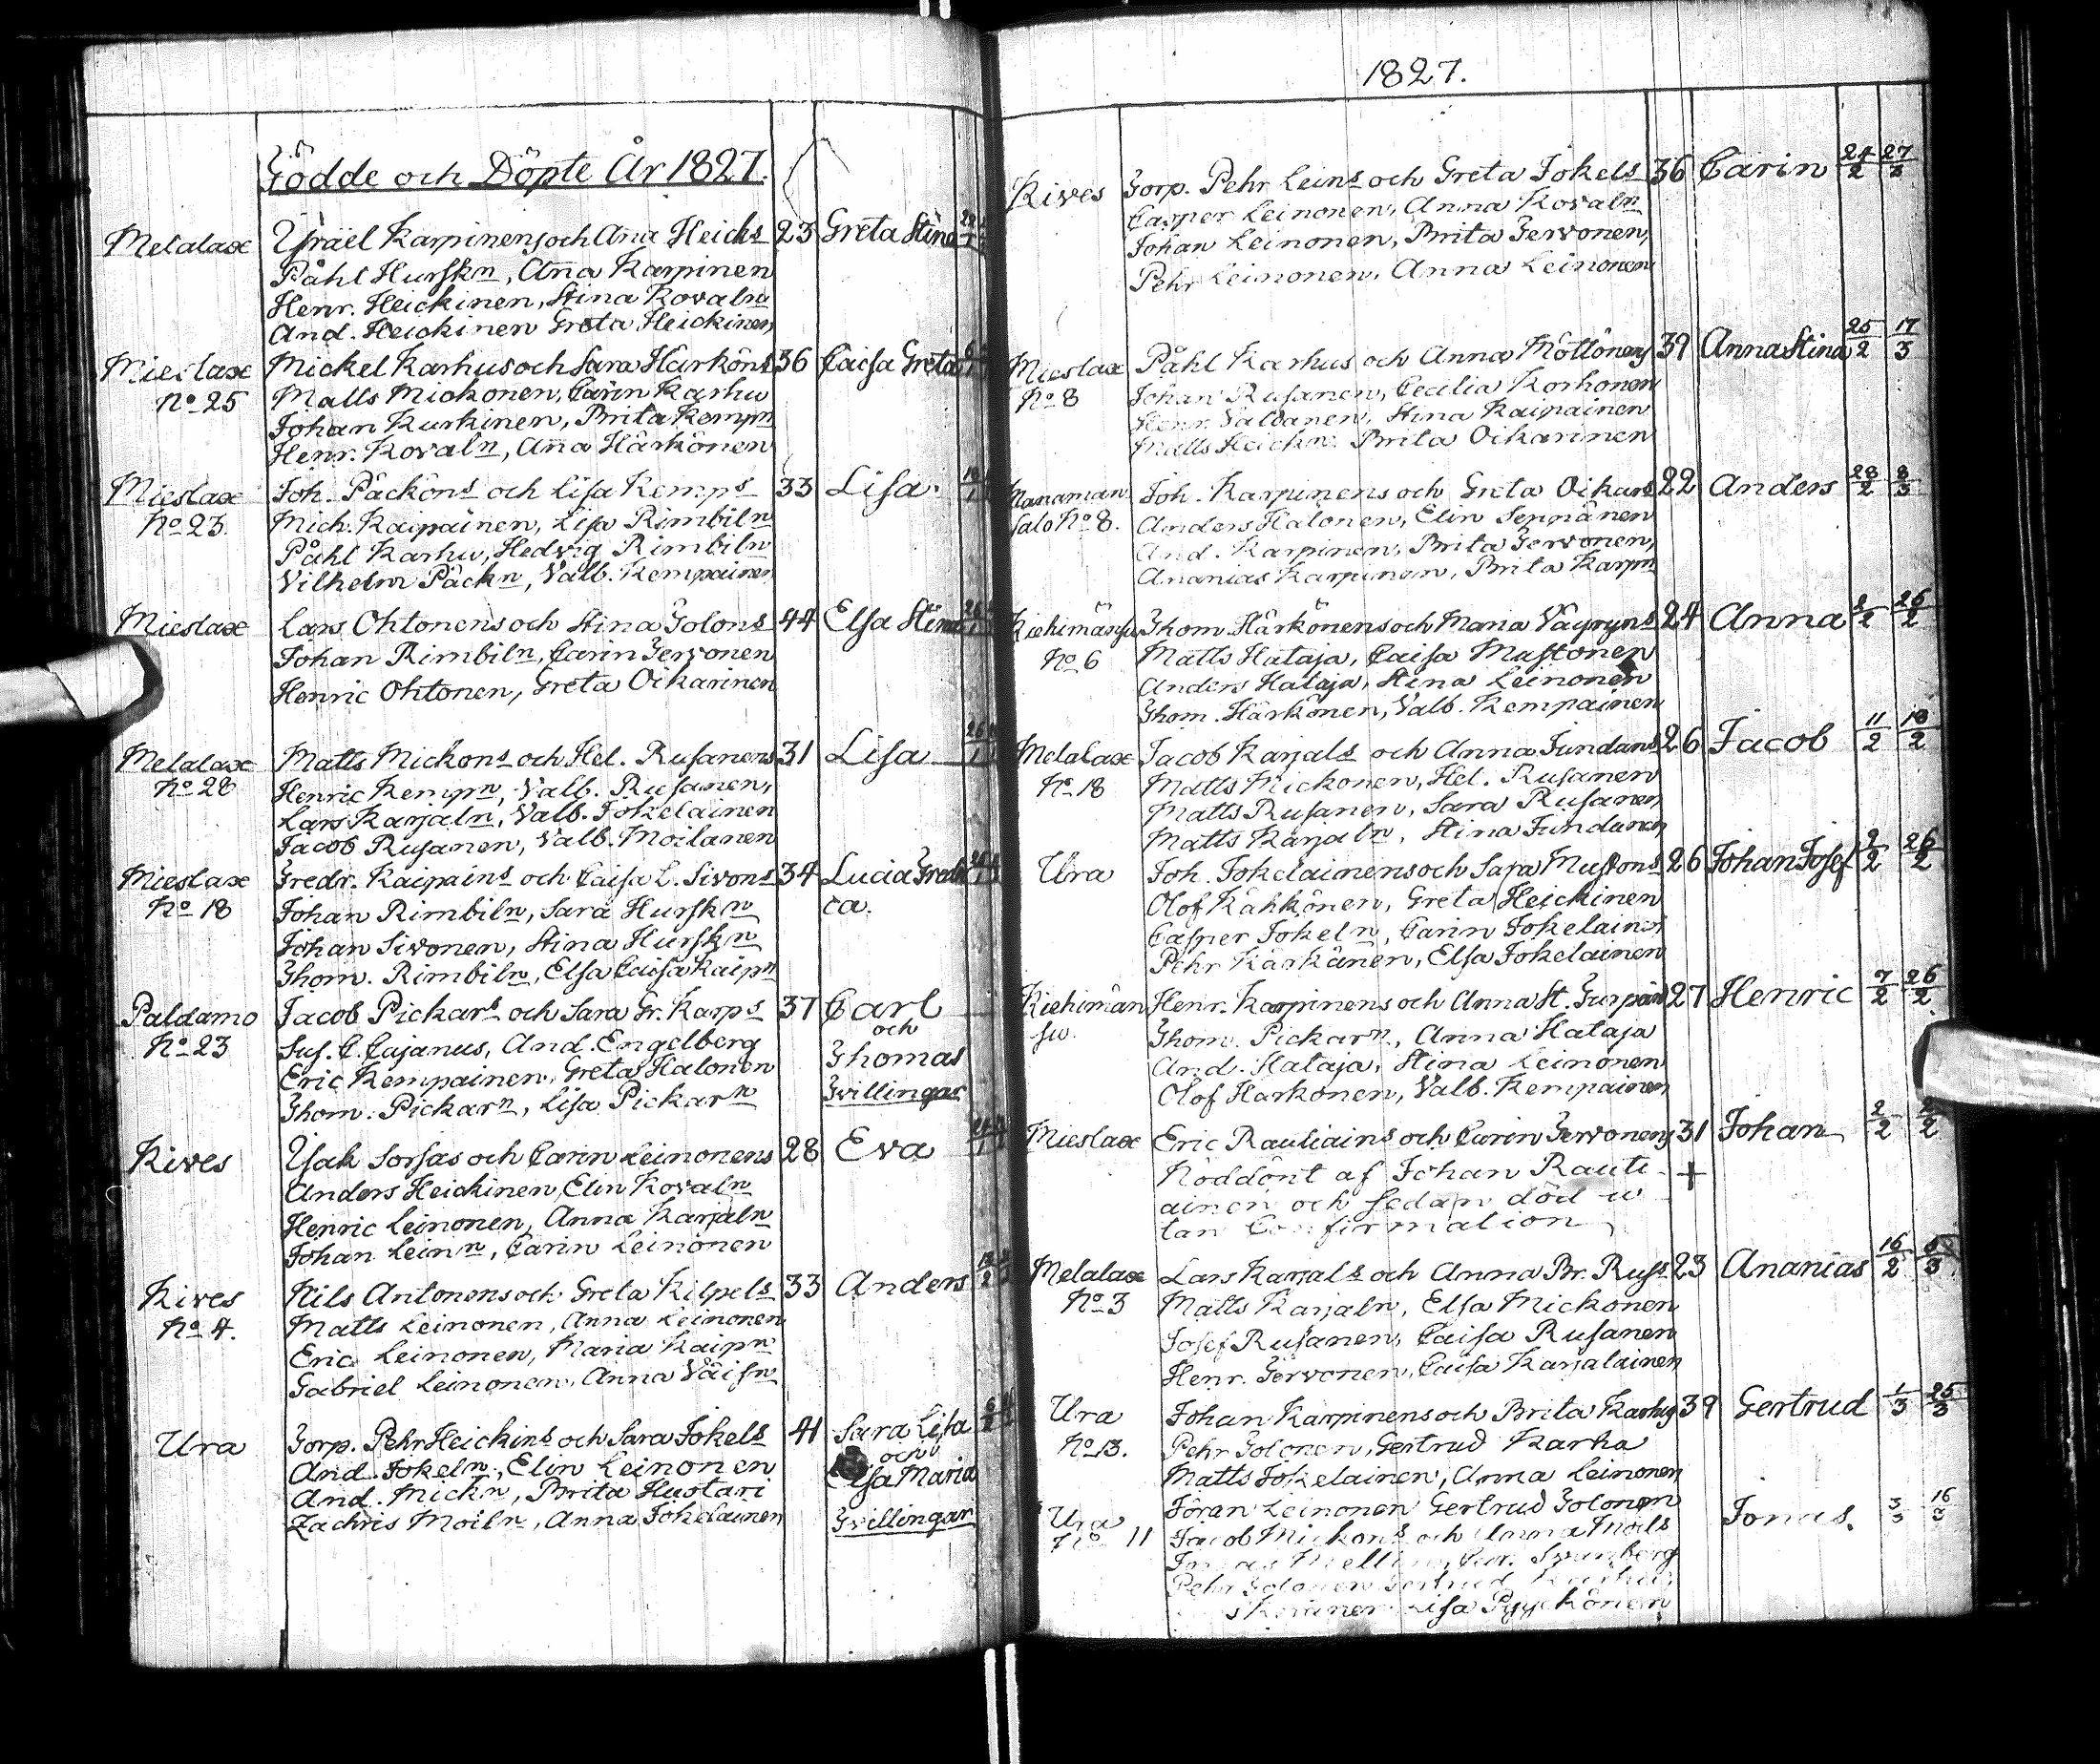 Födde och Döpte År 1827.
Melalax Ysräel Karpinens och Aña Heicks 23 Greta Stina
Påhl Hurskn, Aña Karpinen
Henr. Heickinen, Stina Kovaln
And. Heickinen Greta Heickinen
Mieslax Mickel Karhus och Sara Härköns 36 Caisa Greta
No 25 Matts Mickonen, Carin Karhu
Johan Kurkinen, Brita Kempn
Henr. Kovaln, Aña Härkönen
Mieslax Joh. Päcköns och Lisa Kemps 33 Lisa.
No 23. Mich. Kaipainen, Lisa Rimbiln
Påhl Karhu, Hedvig Rimbiln
Vilhelm Päckn, Valb. Kempainen
Mieslax Lars Ohtonens och Stina Tolons 44 Elsa Stina
Johan Rimbiln, Carin Tervonen
Henric Ohtonen, Greta Oikarinen
Melalax Matts Mickons och Hel. Rusanens 31 Lisa
No 28 Henric Kempn, Valb. Rusanen,
Lars Karjaln, Valb. Jokelainen
Jacob Rusanen, Valb. Moilanen
Mieslax Fredr. Kaipains och Caisa L. Sivons 34 Lucia Fredri
No 18 Johan Rimbiln, Sara Hurskn ca.
Johan Sivonen, Stina Hurskn
Thom. Rimbiln, Elsa Caisa Kaipn
Paldamo Jacob Pickars och Sara Gr. Karps 37 Carl
och
No 23 Sus. C. Cajanus, And. Engelberg Thomas
Eric Kempainen, Greta Halonen
Thom. Pickarn, Lisa Pickarn Tvillingar
Kives Ysak Sorsas och Carin Leinonens 28 Eva
Anders Heickinen, Elin Kovaln
Henric Leinonen, Anna Karjaln
Johan Leinn, Carin Leinonen
Kives Nils Antonens och Greta Kilpels 33 Anders
No 4. Matts Leinonen, Anna Leinonen
Eric Leinonen, Maria Kaipn
Gabriel Leinonen, Anna Väisn
Ura Torp. Pehr Heickins och Sara Jokels 41 Sara Lisa
och
And. Jokeln, Elin Leinonen Elsa Maria
And. Mickn, Brita Huotari
Zachris Moiln, Anna Jokelainen Tvillingar
1827.
Kives Torp. Pehr Leins och Greta Jokels 36 Carin 24/2 27/2
Casper Leinonen, Anna Kovaln
Johan Leinonen, Brita Tervonen,
Pehr Leinonen, Anna Leinonen
Mieslax Påhl Karhus och Anna Möttönens 39 Anna Stina 25/2 17/3
No 8 Johan Rusanen, Cecilia Korhonen
Henr. Valdanen, Stina Kaipainen
Matts Heickn. Brita Oikarinen
Manaman Joh. Karpinens och Greta Oikars 22 Anders 28/2 8/3
salo No 8. Anders Halonen, Elin Seppänen
And. Karpinen, Brita Tervonen,
Ananias Karpinen, Brita Karpn
Kiehimänsu Thom. Härkönens och Maria Väyryns 24 Anna 26/2
No 6 Matts Hataja, Caisa Mustonen
Anders Hataja, Stina Leinonen
Thom. Härkönen, Valb. Kempainen
Melalax Jacob Karjals och Anna Tundans 26 Jacob 11/2 18/2
No 18 Matts Mickonen, Hel. Rusanen
Matts Rusanen, Sara Rusanen
Matts Karjaln, Stina Tundanen
Ura Joh. Jokelainens och Sara Mustons 26 Johan Josef 2/2 26/2
Olof Kähkönen, Greta Heickinen
Casper Jokeln, Carin Jokelainen
Pehr Karkänen, Elsa Jokelainen
Kiehimän Henr. Karpinens och Anna St. Turpäns 27 Henric 7/2 26/2
su. Thom. Pickarn, Anna Hataja
And. Hataja, Stina Leinonen
Olof Harkonen, Valb. Kempainen
Mieslax Eric Rautiains och Carin Tervonens 31 Johan 2/2
Nöddönt af Johan Rauti +
ainen och sedan död u
tan Confirmation
Melalax Lars Karjals och Anna Br. Russ 23 Ananias 16/2
No 3 Matts Karjaln, Elsa Mickonen
Josef Rusanen, Caisa Rusanen
Henr. Tervonen, Caisa Karjalainen
Ura Johan Karpinens och Brita Karhus 39 Gertrud 1/3 25/3
No 13. Pehr Tolonen, Gertrud Karha
Matts Jokelainen, Anna Leinonen
Joran Leinonen Gertrud Tolonen
Ura Jacob Mickons och Anna Moils Jonas. 3/3 16/3
No 11
Pehr Tolonen Gertrud
Lisa Pyykönen